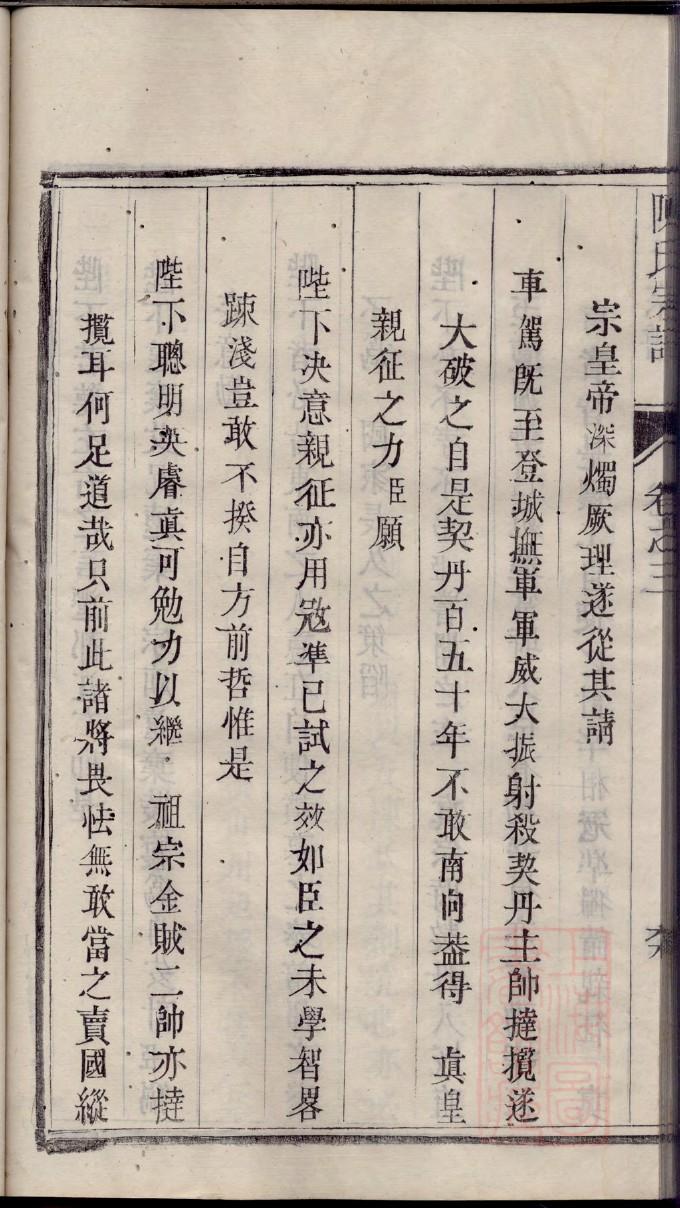 陳氏宗譜
卷之三
宗皇帝深燭厥理遂從其請
車駕旣至登城撫軍軍威大振射殺契丹主帥撻攬遂
大破之自是契丹百五十年不敢南向葢得 真皇
親征之力臣願
陛下决意親征亦用冦準已試之效如臣之末學智畧
踈淺豈敢不揆自方前哲惟是
陛下聰明英睿真可勉力以繼 祖宗金賊二帥亦撻
攬耳何足道哉只前此諸將畏怯無敢當之賣國縱